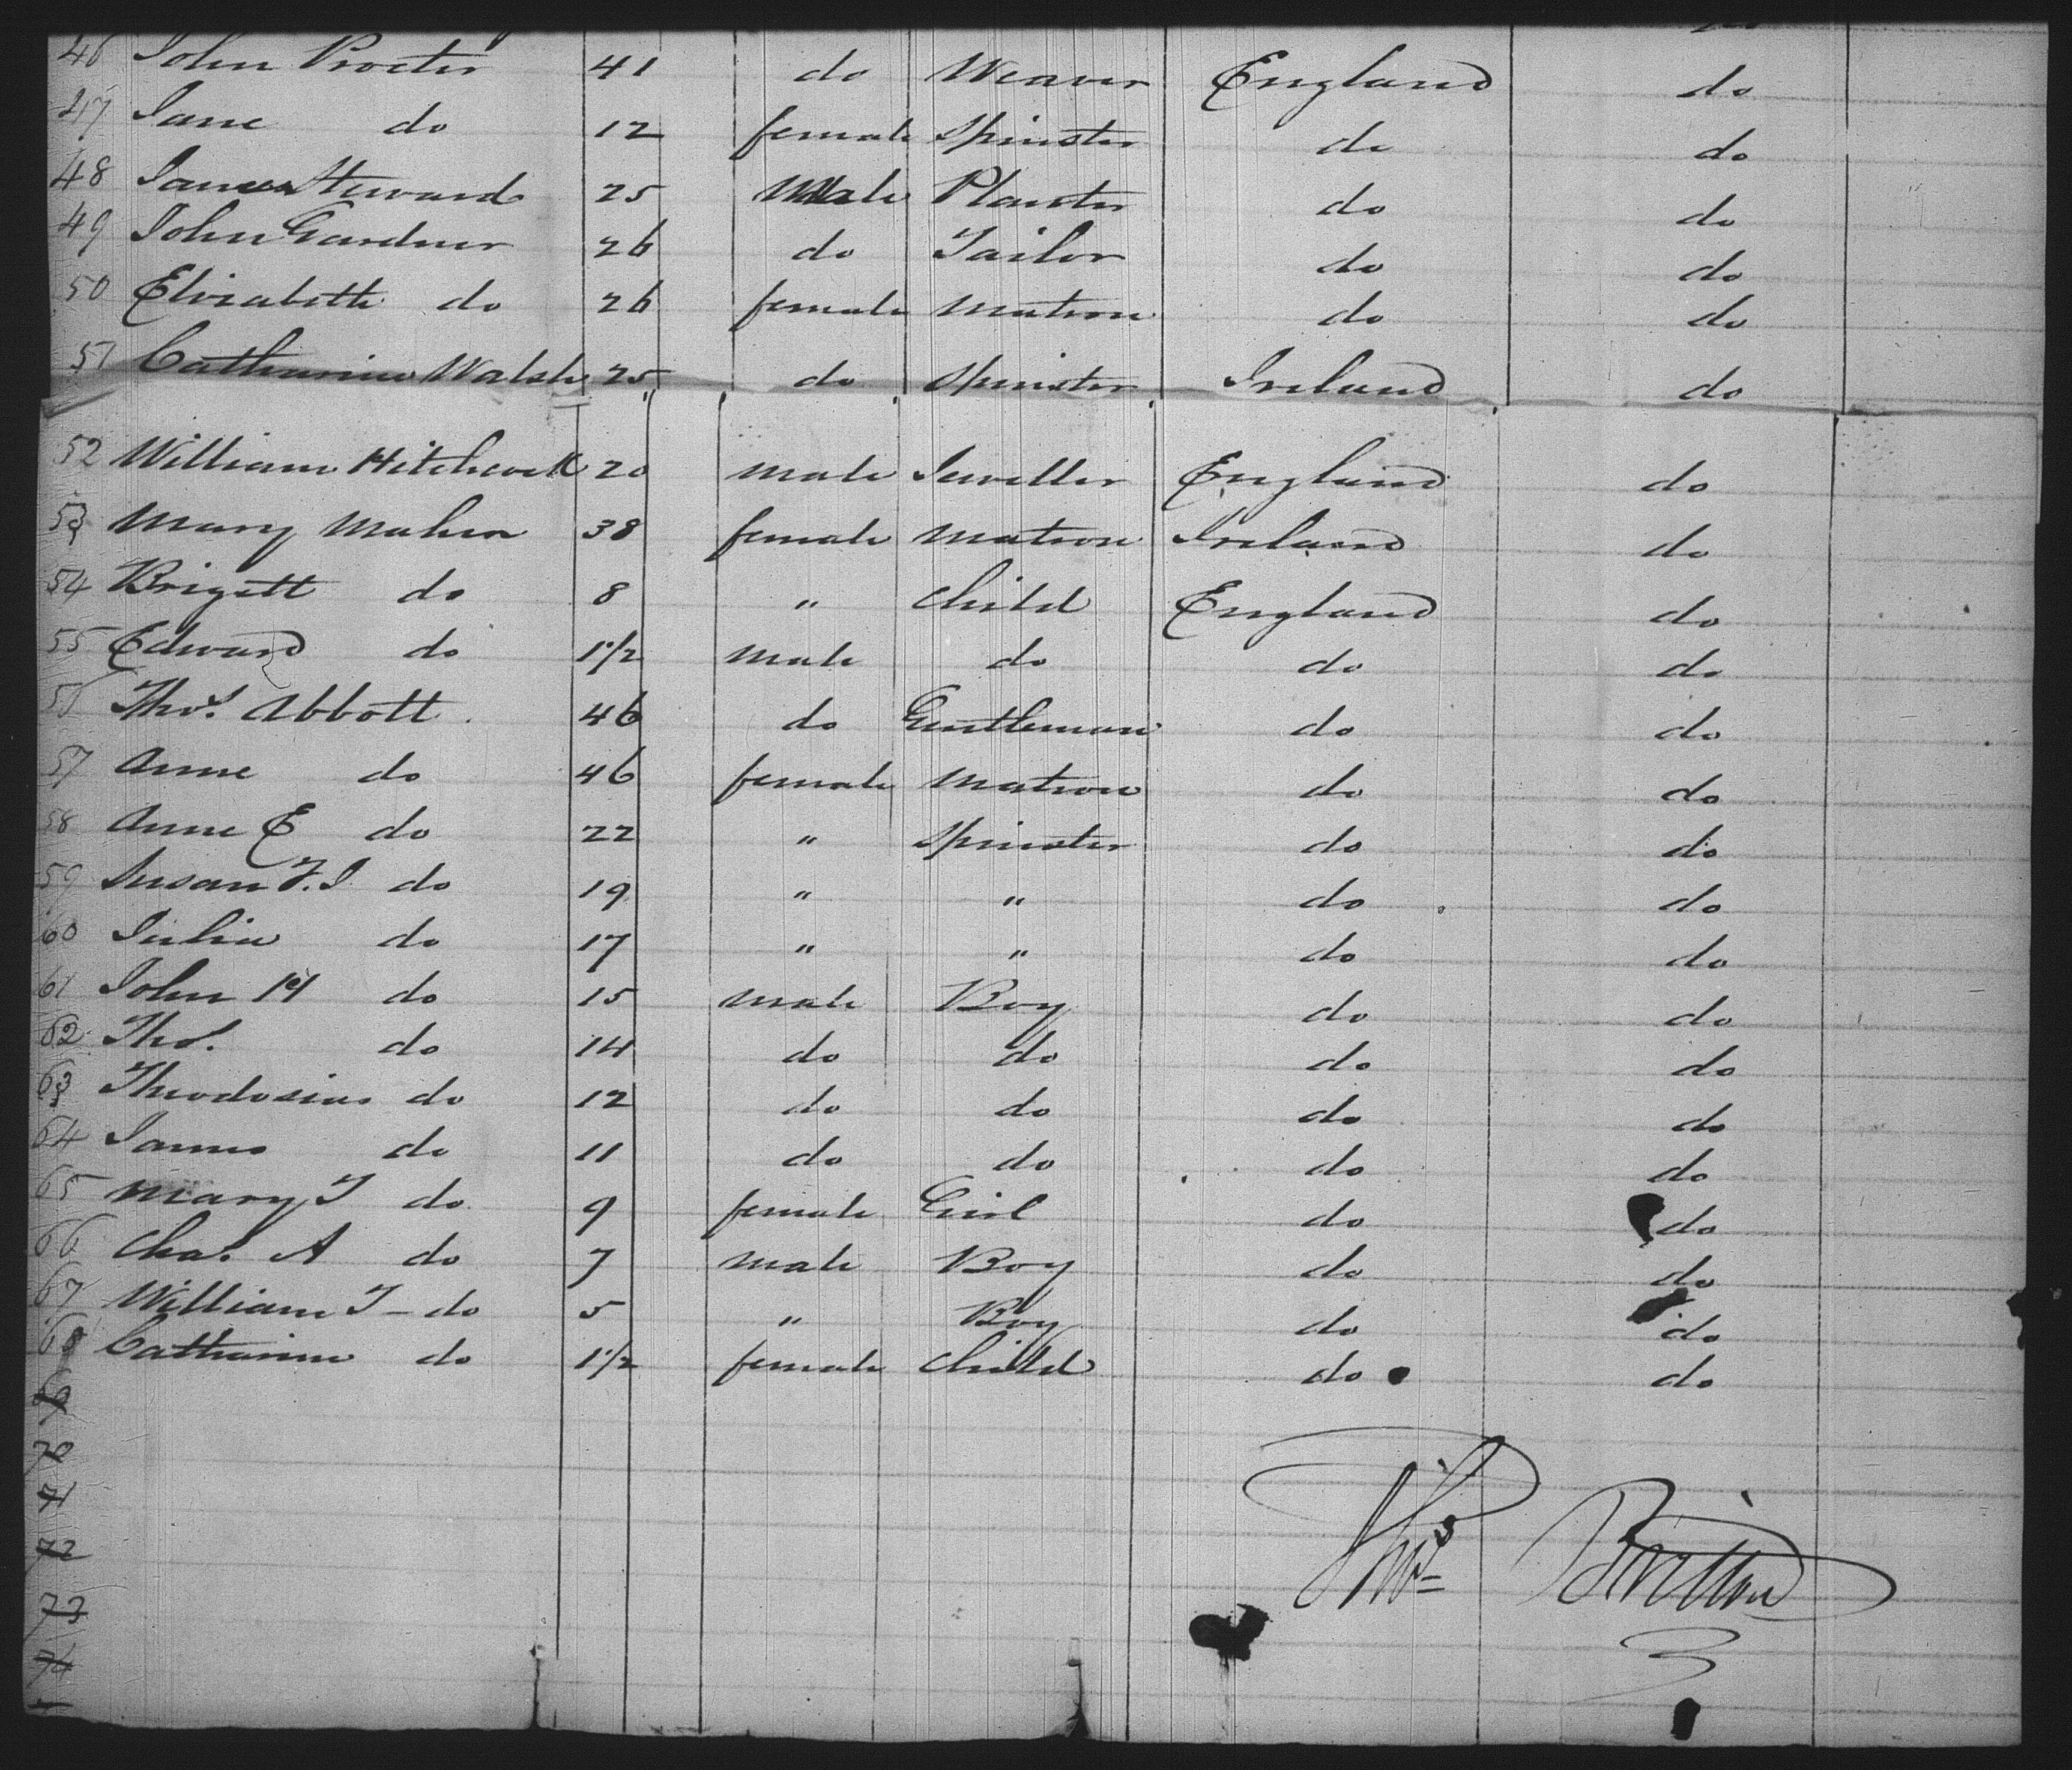 46 John Procter 41 do Weaver England do
47 Jane do 12 female Spinster do do
48 James Steward 25 Male Planter do do
49 John Gardner 26 do Tailor do do
50 Elizabeth do 26 female Matron do do
51 Catharine Walsh 25 do Spinster Ireland do
52 William Hitchcock 20 male Jeweller England do
53 Mary Maher 38 female Matron Ireland do
54 Brigett do 8 " Child England do
55 Edward do 1 1/2 male do do do
56 Thos. Abbott 46 do Gentleman do do
57 Anne do 46 female Matron do do
58 Anne E do 22 " Spinster do do
59 Susan F. J do 19 " " do do
60 Julia do 17 " " do do
61 John H do 15 male Boy do do
62 Thos. do 14 do do do do
63 Theodosius do 12 do do do do
64 James do 11 do do do do
65 Mary J do 9 female Girl do do
66 Chas. A do 7 male Boy do do
67 William J - do 5 " Boy do do
68 Catharine do 1 1/2 female Child do do
69
70
71
72
73
74
Thos Britton